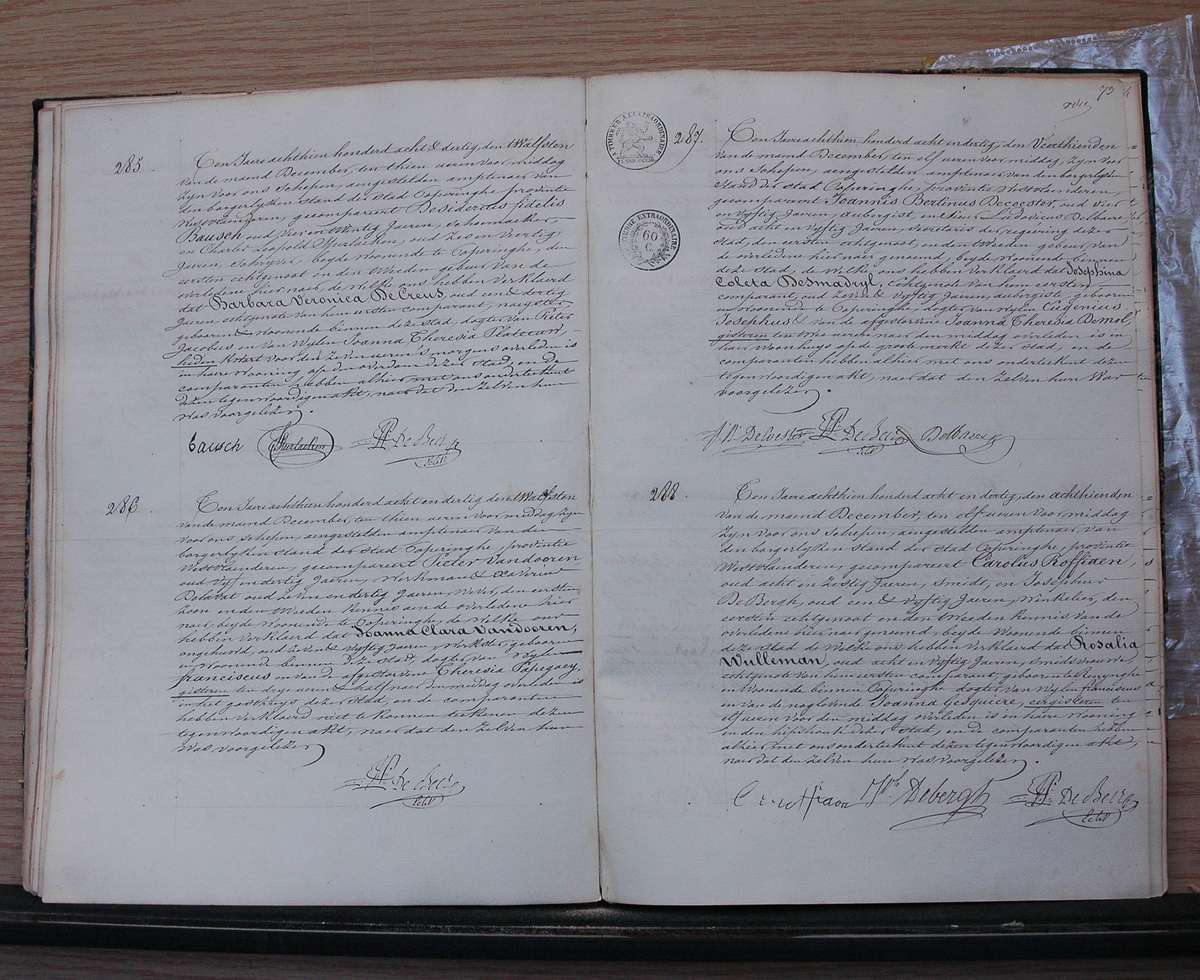 285.
Ten Jaere achthien honderd acht & dertig, den twalfsten
van de maend December, ten thien ueren voor middag
zyn voor ons Schepen, aengestelden amptenaer van
den borgerlyken stand der stad Poperinghe provintie
Westvlaenderen, gecompareert Desiderius fidelis
Bausch oud vier en twintig Jaeren, Schoenmaeker
en Charles Leopold oud zeven veertig
Jaeren, Schryver, beyde woonende te Poperinghe, den
eersten echtgenoot en den tweeden gebuer van de
overledene hier naer, de welke ons hebben verklaerd
dat Barbara Veronica De Creus, oud een & dertig
Jaeren, echtgenote van hem eersten comparant, naeyster
geboren & woonende binnen deze stad dogter van Pieter
Jacobus en van wylen Joanna Theresia Platevoet,
heden kwart voor den zeven ueren 's morgens overleden is
in haere wooning op de overdam dezer stad, en de
comparanten hebben alhier met ons onderteekent
dezen tegenwoordigen akt, naer dat den zelven hun
was voorgelezen.
Bausch De Beir
Schp
286.
Ten Jaere achthien honderd acht en dertig den twalfsten
van de maend December, ten thien ueren voor middag zyn
voor ons Schepen, aengestelden amptenaer van den
borgerlyken stand der stad Poperinghe, provintie
Westvlaenderen, gecompareert Pieter Vandooren
oud vyf en dertig Jaeren, werkman & Xaverius
Delaval oud zeven en dertig Jaeren, wever, den eersten
zoon en den tweeden kennis aen de overledene hier
naer, beyde woonende te Poperinghe de welke ons
hebben verklaerd dat Joanna Clara Vandooren,
ongehuwd, oud zeven & vyftig Jaeren, werkster, geboren
en woonende binnen deze stad, dogter van wylen
franciscus en van de afgestorven Theresia Papegaey,
gisteren ten dry ueren & half naer den middag overleden is
in het gasthuys dezer stad, en de comparanten
hebben verklaerd niet te konnen teekenen dezen
tegenwoordigen akt, naer dat den zelven hun
was voorgelezen
De Beir
Schp
73
TIMBRE EXTRAORDINAIRE
TIMBRE EXTRAORDINAIRE
60
C
287.
Ten Jaere achthien honderd acht en dertig, den Veerthienden
van de maend December, ten elf ueren voor middag, zyn voor
ons Schepen, aengestelden amptenaer van den borgerlyken
stand der stad Poperinghe, provintie Westvlaenderen
gecompareert Joannes Bertinus Decoester, oud vier
en vyftig Jaeren, aubergist, en d'heer Ludovicus Delbaere
oud acht en vyftig Jaeren, Secretaris der regering dezer
stad, den eersten echtgenoot, en den tweeden gebuer van
de overledene hier naer genoemd, beyde woonende binnen
deze stad, de welke ons hebben verklaerd dat Josephina
Coleta Desmadryl, echtgenote van hem eersten
comparant, oud zeven & vyftig Jaeren, aubergiste geboren
en woonende te Poperinghe, dogter van wylen Eugenius
Josephus & van de afgestorven Joanna Theresia Demol,
gisteren ten twee ueren naer den middag overleden is in
haer woonhuys op de groote merkt dezer stad, en de
comparanten hebben alhier met ons onderteekent dezen
tegenwoordigen akt, naer dat den zelven hun was
voorgelezen.
De Beir Delbaere
Schp
288.
Ten Jaere achthien honderd acht en dertig, den achthienden
van de maend December, ten elf ueren voor middag
zyn voor ons Schepen, aengestelden amptenaer van
den borgerlyken stand der stad Poperinghe provintie
Westvlaenderen, gecompareert Carolus Roffiaen,
oud acht en zestig Jaeren, Smidt, en Josephus
De Bergh, oud een & vyftig Jaeren, winkelier, den
eersten echtgenoot en den tweeden kennis van de
overledene hier naer genoemd, beyde woonende binnen
deze stad de welke ons hebben verklaerd dat Rosalia
Wulleman, oud acht en vyftig Jaeren, Smidsvrouwe
echtgenote van hem eersten comparant, geboren te Reninghe
en woonende binnen Poperinghe dogter van wylen franciscus
en van de naglevende Joanna Gesquiere, eergisteren ten
elf ueren voor den middag overleden is in haere wooning
in den dezer stad, en de comparanten hebben
alhier met ons onderteekent dezen tegenwoordigen akt,
naer dat den zelven hun was voorgelezen.
C roffiaen Debergh De Beir
Schp